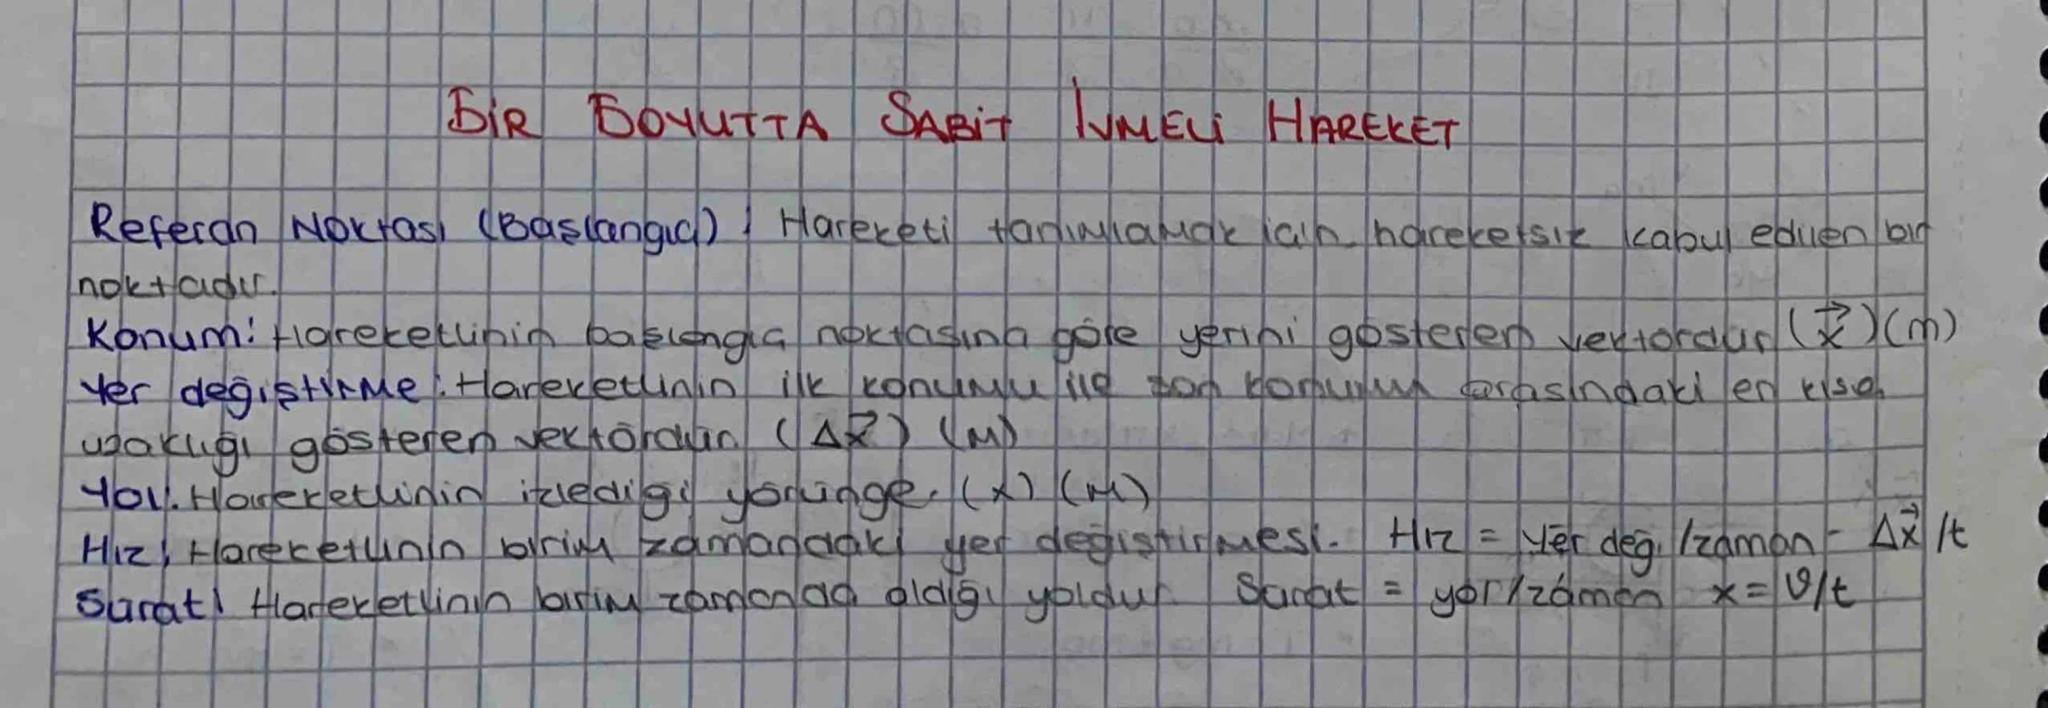 BİR BOYUTTA SABİT İVMELİ HAREKET
Referan Noktası (Başlangıcı) : Hareketi tanımlamak için hareketsiz kabul edilen bir
noktadır.
Konum: Hareketlinin başlangıç noktasına göre yerini gösteren vektördür (x⃗) (m)
Yer değiştirme : Hareketlinin ilk konumu ile son konumu arasındaki en kısa
uzaklığı gösteren vektördür (Δx⃗) (m)
Yol: Hareketlinin izlediği yörünge. (x) (m)
Hız: Hareketlinin birim zamandaki yer değiştirmesi. Hız = Yer değ. /zaman - Δx⃗ /t
Sürat: Hareketlinin birim zamanda aldığı yoldur Sürat = yol/zaman x = ϑ/t